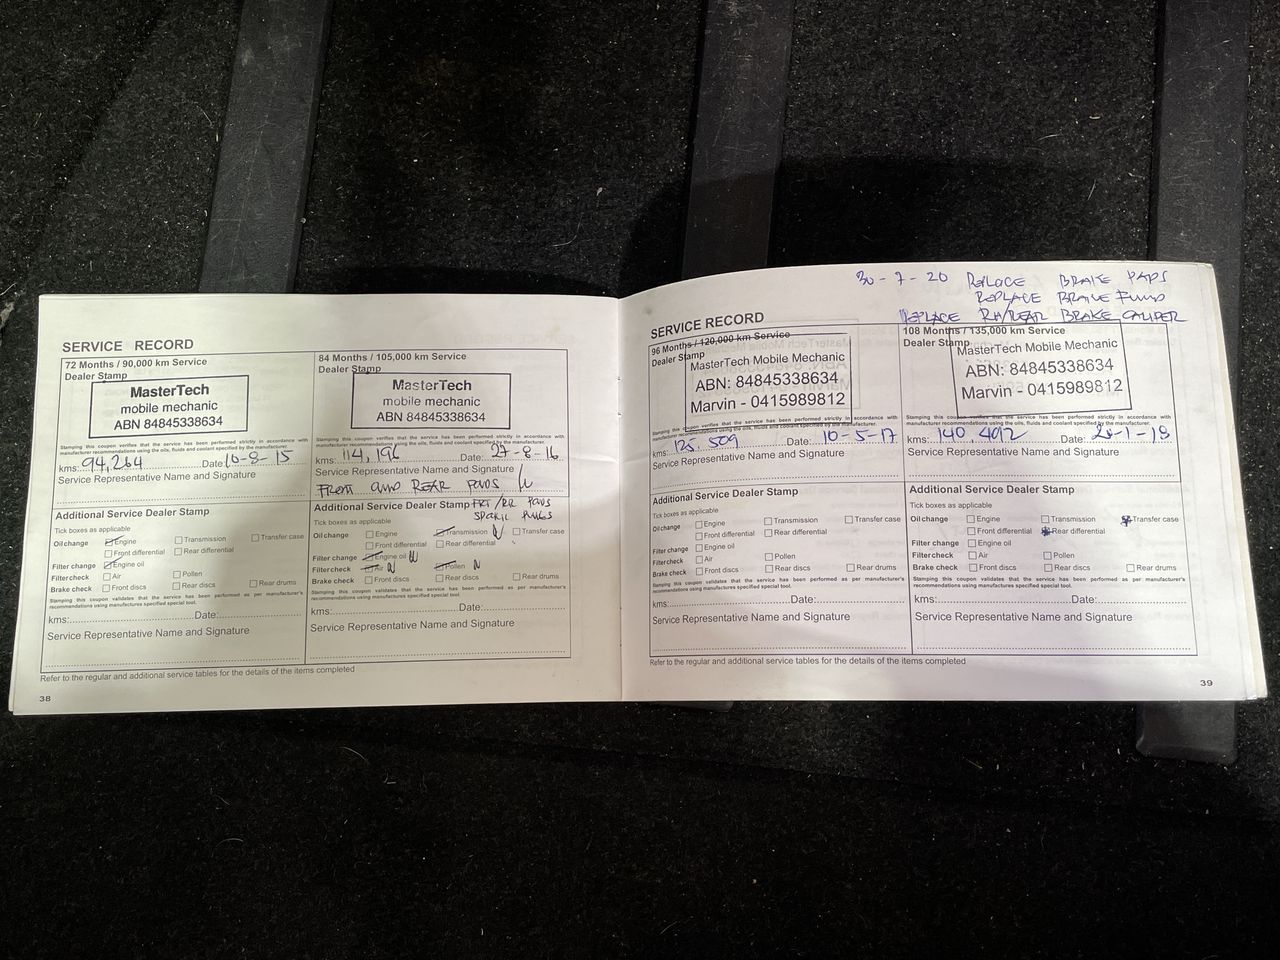 SERVICE RECORD
72 Months / 90,000 km Service
Dealer Stamp
MasterTech
mobile mechanic
ABN 84845338634
Stamping this coupon verifies that the service has been performed strictly in accordance with
manufacturer recommendations using the oils, fluids and coolant specified by the manufacturer.
kms: 94,264 Date: 10-8-15
Service Representative Name and Signature
Additional Service Dealer Stamp
Tick boxes as applicable
Oil change Engine Transmission Transfer case
Front differential Rear differential
Filter change Engine oil
Filter check Air Pollen
Brake check Front discs Rear discs Rear drums
Stamping this coupon validates that the service has been performed as per manufacturer's
recommendations using manufactures specified special tool.
kms: Date:
Service Representative Name and Signature
84 Months / 105,000 km Service
Dealer Stamp
MasterTech
mobile mechanic
ABN 84845338634
Stamping this coupon verifies that the service has been performed strictly in accordance with
manufacturer recommendations using the oils, fluids and coolant specified by the manufacturer.
kms: 114,196 Date: 27-8-16
Service Representative Name and Signature
FRONT AND REAR PADS
Additional Service Dealer Stamp FRT/RR PADS
SPARK PLUGS
Tick boxes as applicable
Oil change Engine Transmission N Transfer case
Front differential Rear differential
Filter change Engine oil N
Filter check Air N Pollen N
Brake check Front discs Rear discs Rear drums
Stamping this coupon validates that the service has been performed as per manufacturer's
recommendations using manufactures specified special tool.
kms: Date:
Service Representative Name and Signature
Refer to the regular and additional service tables for the details of the items completed
38
30-7-20 REPLACE BRAKE PADS
REPLACE BRAKE FLUID
REPLACE RH/REAR BRAKE CALIPER
SERVICE RECORD
96 Months / 120,000 km Service
Dealer Stamp
MasterTech Mobile Mechanic
ABN: 84845338634
Marvin - 0415989812
Stamping this coupon verifies that the service has been performed strictly in accordance with
manufacturer recommendations using the oils, fluids and coolant specified by the manufacturer.
kms: 125.509 Date: 10-5-17
Service Representative Name and Signature
Additional Service Dealer Stamp
Tick boxes as applicable
Oil change Engine Transmission Transfer case
Front differential Rear differential
Filter change Engine oil
Filter check Air Pollen
Brake check Front discs Rear discs Rear drums
Stamping this coupon validates that the service has been performed as per manufacturer's
recommendations using manufactures specified special tool.
kms: Date:
Service Representative Name and Signature
108 Months / 135,000 km Service
Dealer Stamp
MasterTech Mobile Mechanic
ABN: 84845338634
Marvin - 0415989812
Stamping this coupon verifies that the service has been performed strictly in accordance with
manufacturer recommendations using the oils, fluids and coolant specified by the manufacturer.
kms: 140.492 Date:
Service Representative Name and Signature
Additional Service Dealer Stamp
Tick boxes as applicable
Oil change Engine Transmission Transfer case
Front differential Rear differential
Filter change Engine oil
Filter check Air Pollen
Brake check Front discs Rear discs Rear drums
Stamping this coupon validates that the service has been performed as per manufacturer's
recommendations using manufactures specified special tool.
kms: Date:
Service Representative Name and Signature
Refer to the regular and additional service tables for the details of the items completed
39